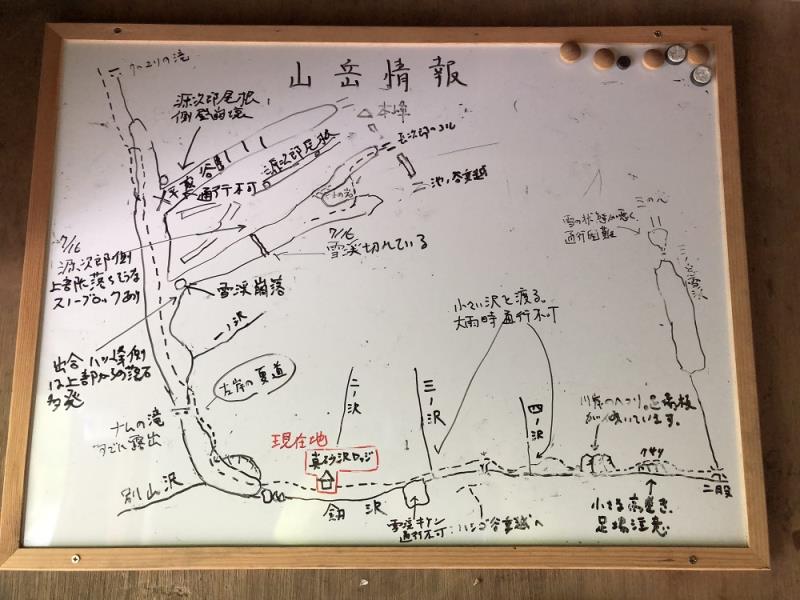 山岳情報
クヘユリの滝
源次郎尾根
側壁崩壊
本峰
長次郎のコル
平蔵谷
通行不可
源次郎尾根
池ノ谷乗越
7/16
源次郎側
上部に落ちそうな
スノーブロックあり
7/16
雪渓切れている
雪渓崩落
一ノ沢
出合 八ツ峰側
は上部からの落石
多発
左岸の夏道
ナムの滝
すでに露出
別山沢
現在地
真砂沢ロッジ
二ノ沢
三ノ沢
四ノ沢
剱沢
小さい沢を渡る。
大雨時通行不可
雪の状態が悪く、
通行困難
三ノ窓雪渓
川岸のヘツリ。足場板
クサリ
小さな高巻き、
足場注意
二股
通行不可
ハシゴ谷乗越へ